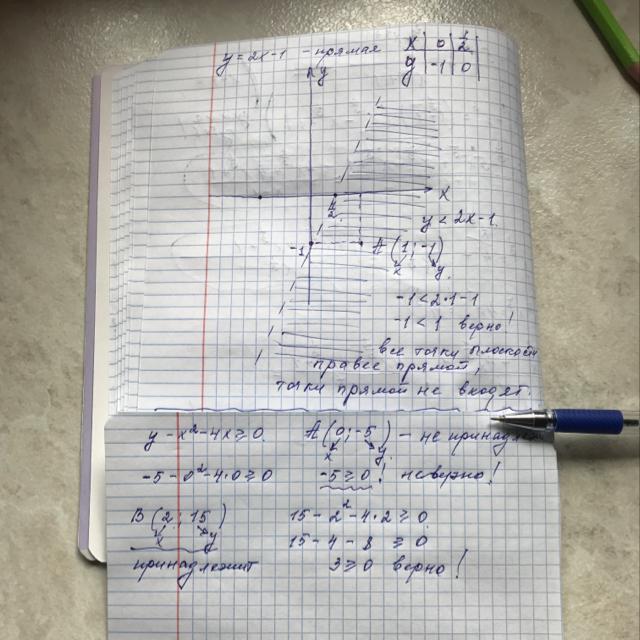 y = 2x-1 - прямая
x | 0 | 1/2
y | -1 | 0
y
x
1/2
y < 2x-1
-1
A(1; -1)
x y
-1 < 2·1-1
-1 < 1 верно!
все точки плоскости
правее прямой,
точки прямой не входят.
y - x² - 4x ≥ 0 A(0; -5) - не принадлеж
x y
-5 - 0² - 4·0 ≥ 0 -5 ≥ 0! неверно!
B(2; 15) 15 - 2² - 4·2 ≥ 0
x y 15 - 4 - 8 ≥ 0
принадлежит 3 ≥ 0 верно!